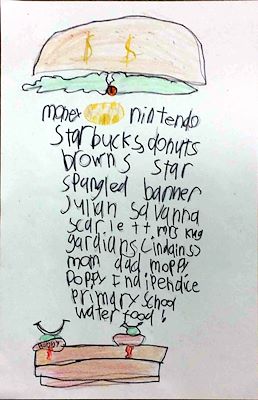 $ $
money nintendo
starbucks donuts
browns star
spangled banner
Julian savanna
scarlett mrs
gardians
mom dad moppy
poppy Indipendice
primary school
water food!